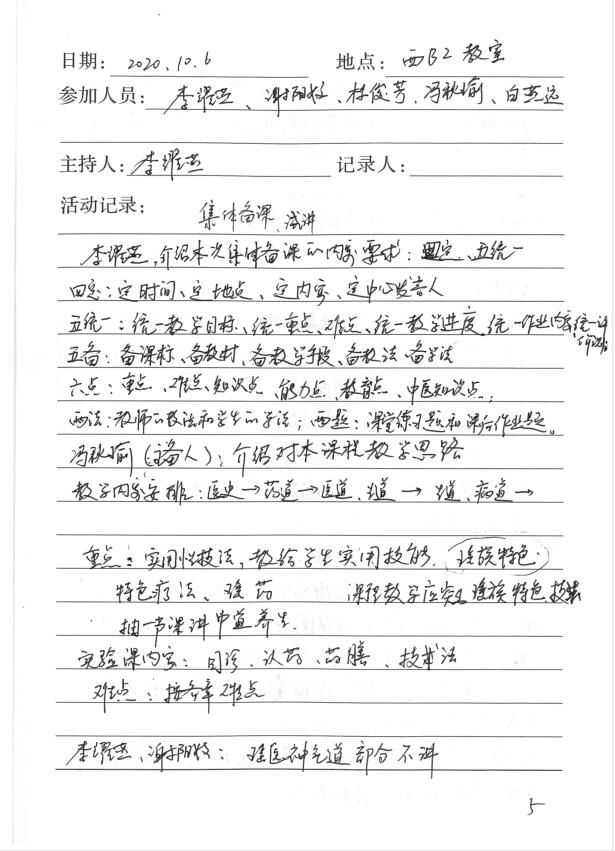 日期: 2020.10.6 地点: 西B2 教室
参加人员: 李耀燕、谢阳姣、林俊芳、冯秋瑜、白燕远
主持人: 李耀燕 记录人:
活动记录: 集体备课、试讲
李耀燕,介绍本次集体备课的内容要求:四定、五统一
四定:定时间、定地点、定内容、定中心发言人
五统一:统一教学目标、统一重点、难点、统一教学进度、统一作业内容、统一评
五备:备课标、备教材、备教学手段、备教法、备学法
六点:重点、难点、知识点、能力点、教育点、中医知识点;
两法:教师的教法和学生的学法;两题:课堂练习题和课后作业题。
冯秋瑜(主备人):介绍对本课程教学思路
教学内容安排:医史→药道→医道、 → 道、病道→
重点:实用性技法,教给学生实用技能. 瑶族特色.
特色疗法、瑶药 课程教学应突 瑶族特色 技法
抽一节课讲中道养生.
实验课内容:目诊、认药、药膳、技术法
难点:按各章难点
李耀燕、谢阳姣:瑶医神气道部分不讲
5